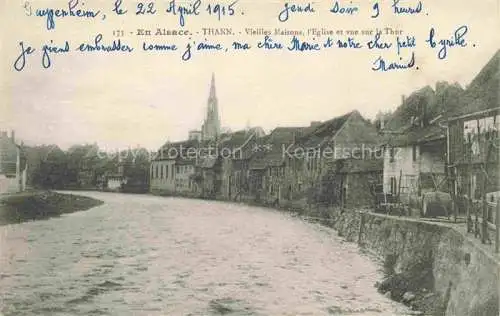 Guppenheim, le 22 Avril 1915. Jeudi Soir 9 heures.
173 - En Alsace. - THANN. - Vieilles Maisons, l'Eglise et vue sur la Thur
Je viens embrasser comme j'aime, ma chère Marie et notre cher petit Cyrille.
Marius.
© www.handelspoint.de